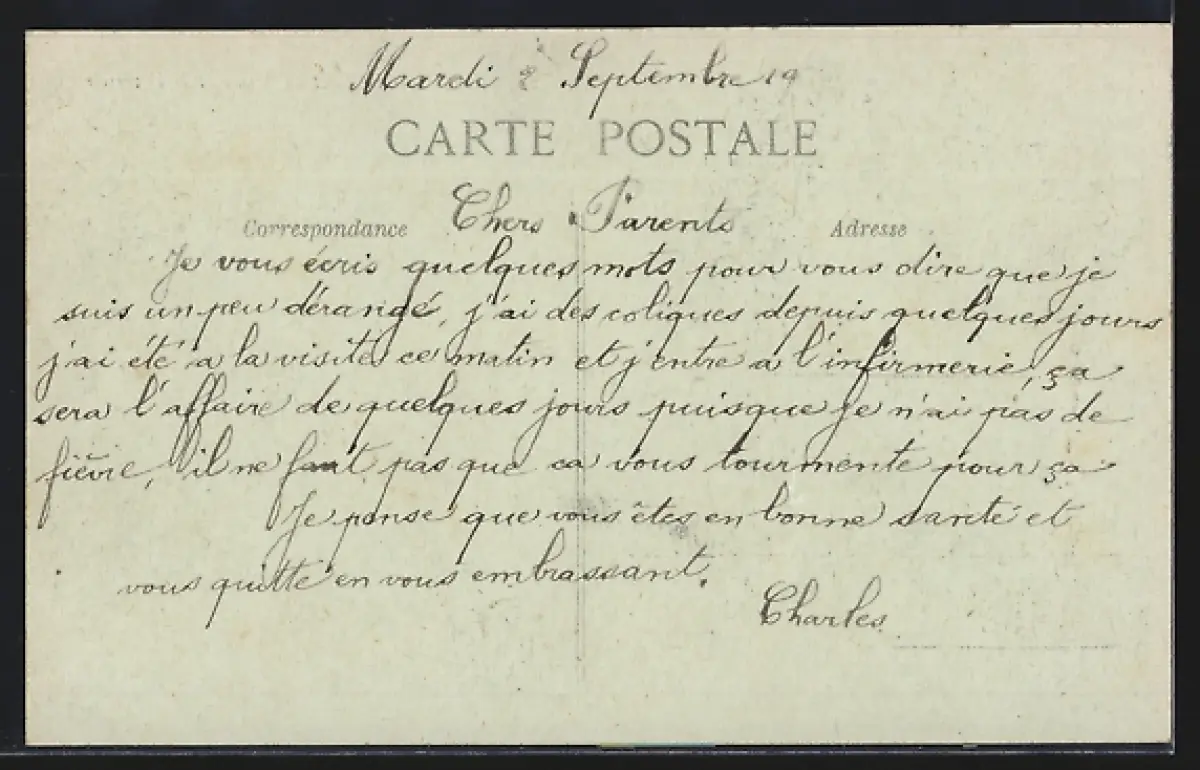 Mardi 2 Septembre 19
CARTE POSTALE
Correspondance Chers Parents Adresse
Je vous écris quelques mots pour vous dire que je
suis un peu dérangé, j'ai des coliques depuis quelques jours
j'ai été a la visite ce matin et j'entre a l'infirmerie, ça
sera l'affaire de quelques jours puisque je n'ai pas de
fièvre, il ne faut pas que ca vous tourmente pour ça
Je pense que vous êtes en bonne santé et
vous quitte en vous embrassant.
Charles